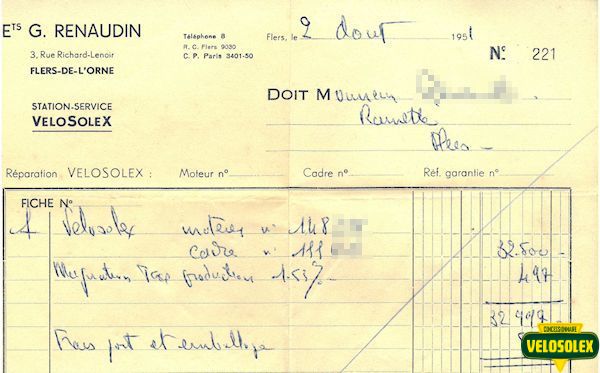 ETS G. RENAUDIN
3, Rue Richard-Lenoir
FLERS-DE-L'ORNE
STATION-SERVICE
VELOSOLEX
Téléphone 8
R. C. Flers 9030
C. P. Paris 3401-50
Flers, le 2 Aout 1951
N° 221
DOIT Monsieur
Réparation VELOSOLEX : Moteur n° Cadre n° Réf. garantie n°
FICHE N°
1 Velosolex moteur n° 148
cadre n° 111 32.500
Majoration Taxe production 1.53% 497
32 997
Frais port et emballage
CONCESSIONNAIRE
VELOSOLEX